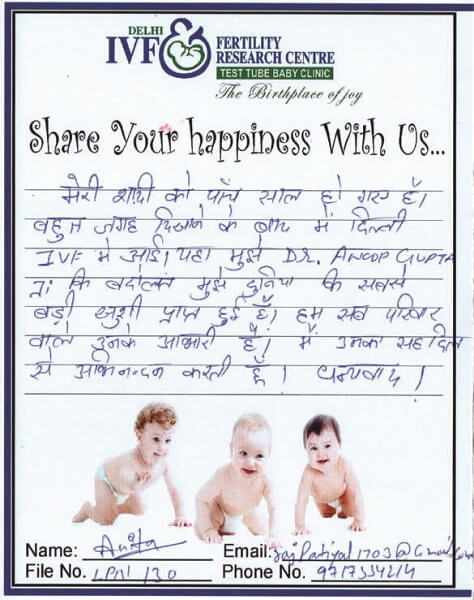 DELHI
IVF
FERTILITY
RESEARCH CENTRE
TEST TUBE BABY CLINIC
The Birthplace of joy
Share Your happiness With Us...
मेरी शादी को पाँच साल हो गए हैं।
बहुत जगह दिखाने के बाद मैं दिल्ली
IVF मे आई। यहा मुझे DR. ANOOP GUPTA
जी कि बदोलत मुझे दुनिया कि सबसे
बड़ी खुशी प्राप्त हुई हैं। हम सब परिवार
वाले उनके आभारी हैं। मैं उनका सहदिल
से अभिनन्दन करती हूँ। धन्यवाद।
Name: Anita
Email: rajpatiyal1703@Gmail.com
File No. 130
Phone No.